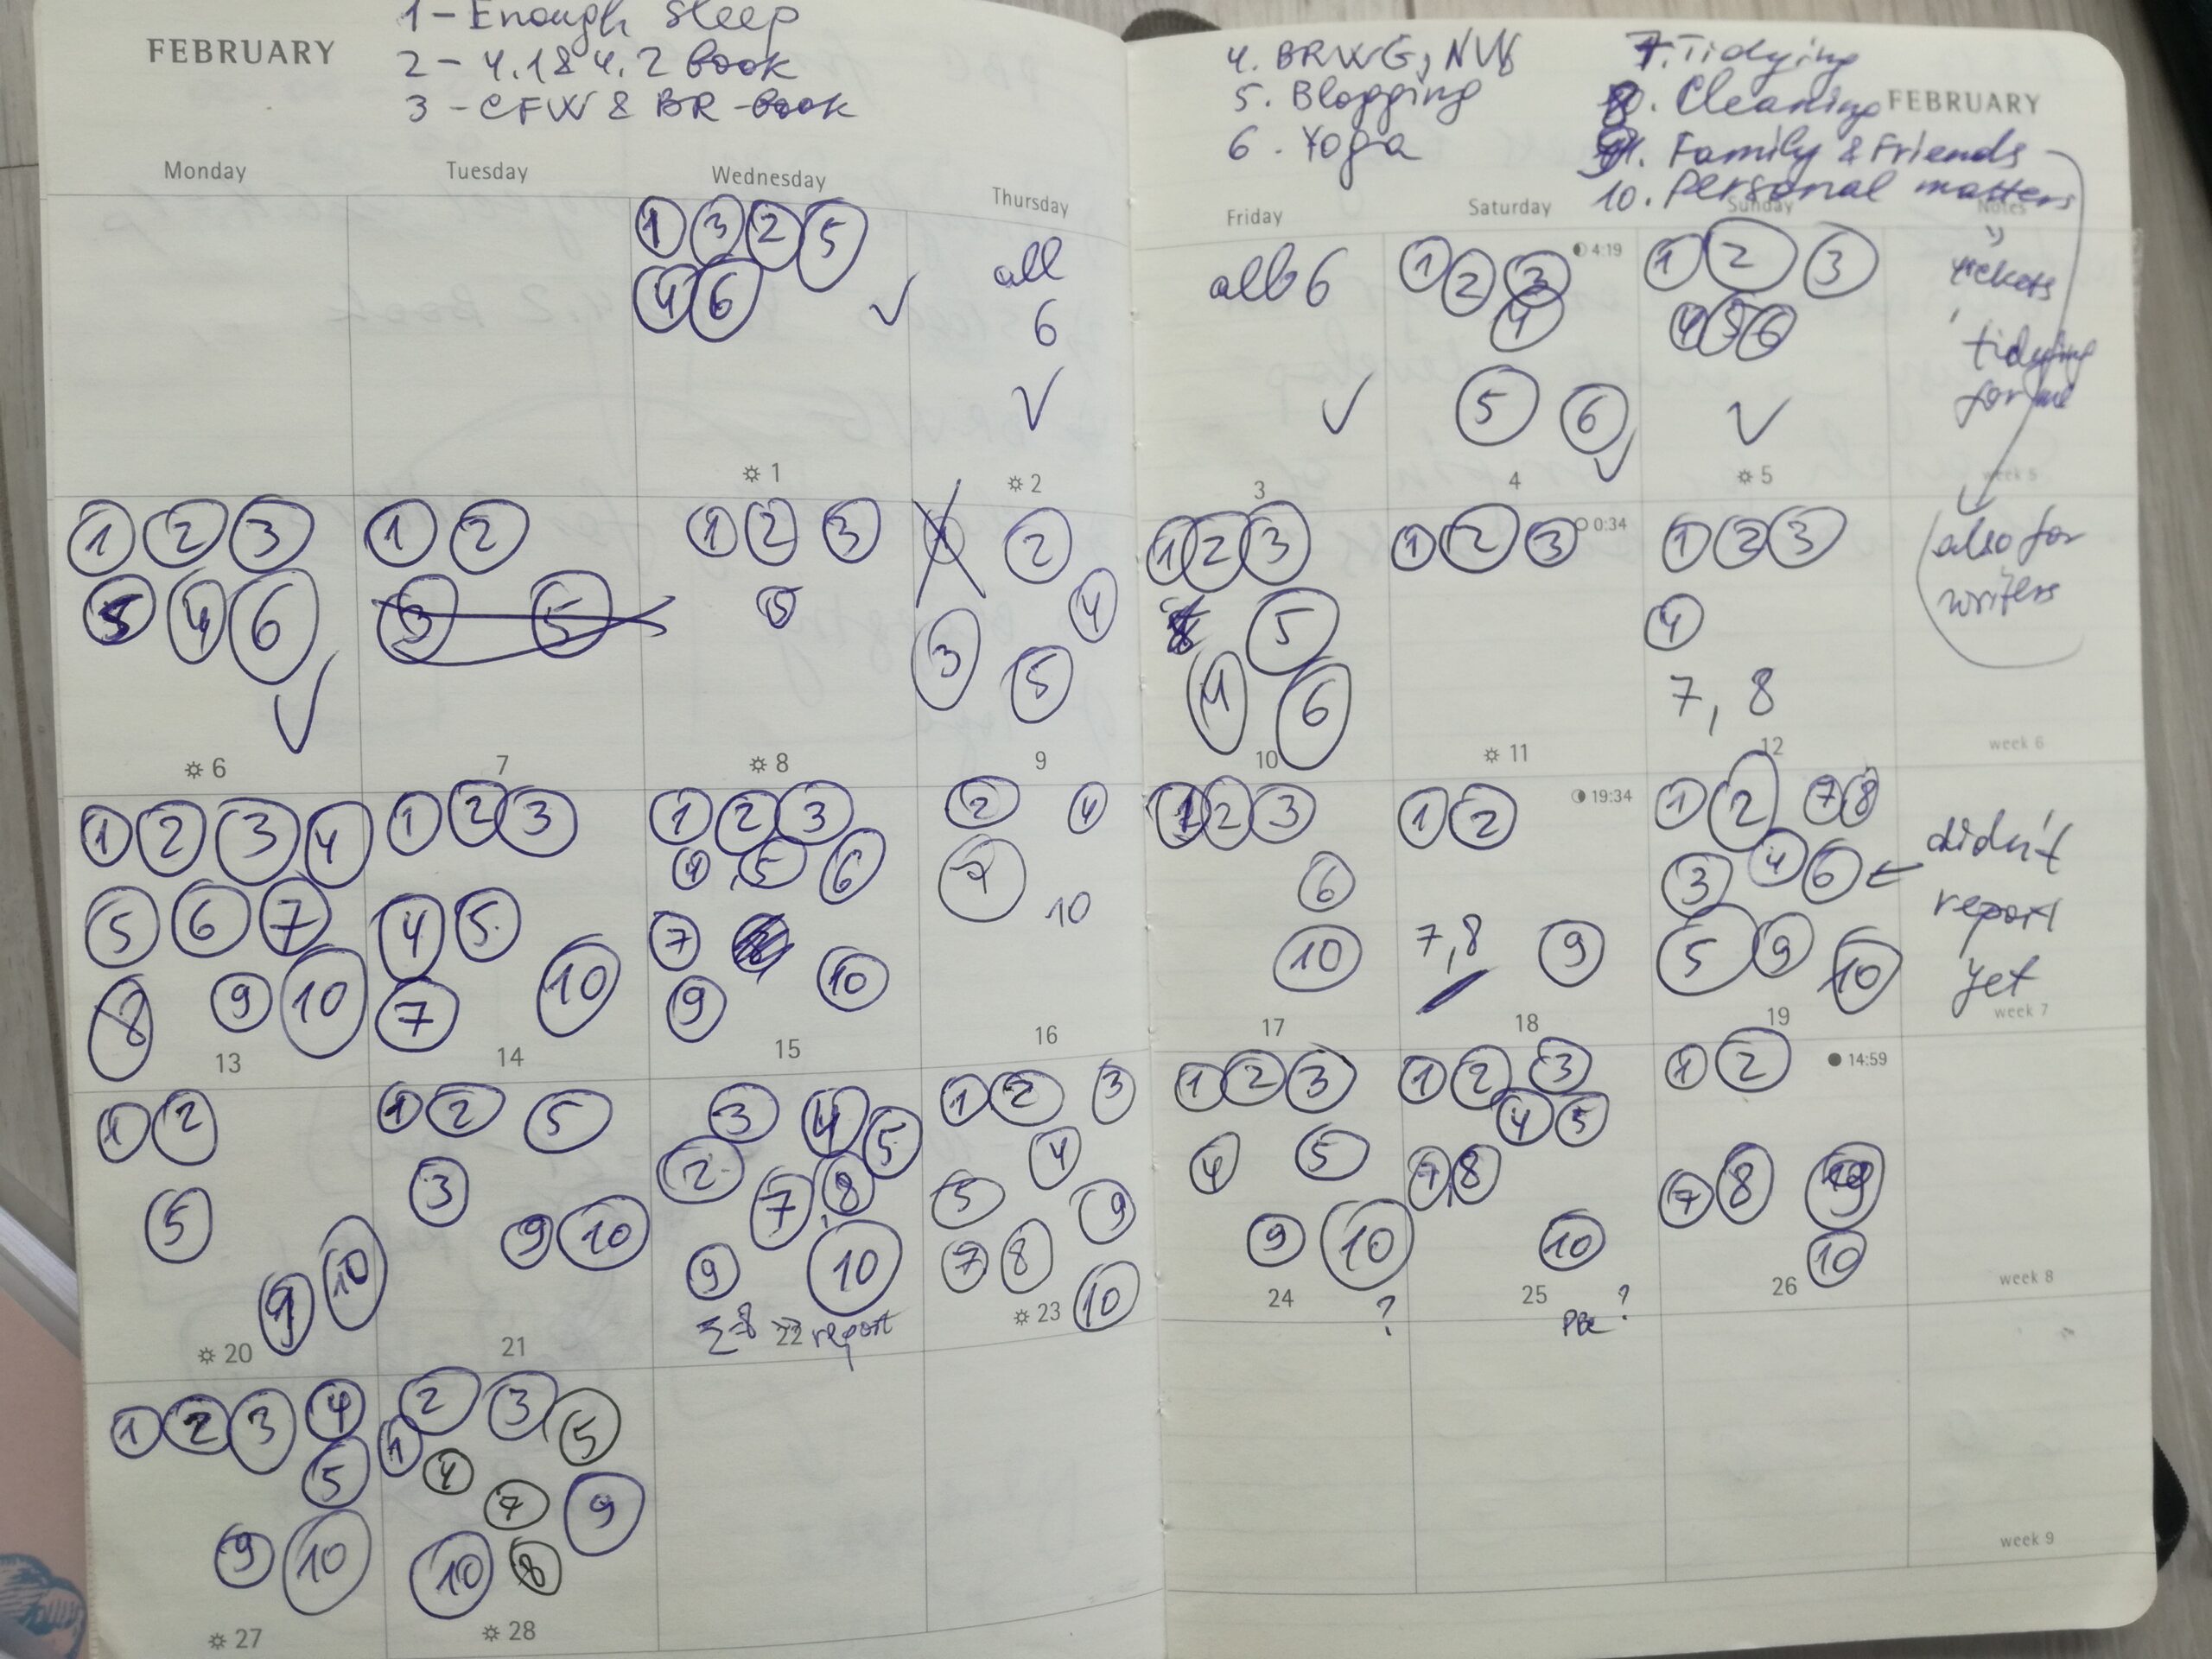 FEBRUARY
1 - Enough sleep
2 - 4.1 & 4.2 book
3 - CFW & BR-book
Monday Tuesday Wednesday Thursday
1 3 2 5
4 6 ✓
all
6
✓
1 2
1 2 3
5 4 6
✓
1 2
3 5
1 2 3
5
1 2
4
3 5
6 7 8 9
1 2 3 4
5 6 7
8 9 10
1 2 3
4 5
7 10
1 2 3
4, 5 6
7 8 10
9
2 4
7 10
13 14 15 16
1 2
5
9 10
1 2 5
3
9 10
3 4 5
2 7, 8
9 10
Σ-8 report
1 2 3
4
5 9
7 8
10
20 21 22 23
1 2 3 4
5
9 10
2 3 5
1 4
7 9
10 8
27 28
4. BRWG,
5. Blogging
6. Yoga
7. Tidying
8. Cleaning
9. Family & Friends
10. Personal matters
FEBRUARY
Friday Saturday Sunday Notes
all 6
✓
1 2 3
4
5 6
✓
4:19
1 2 3
4 5 6
✓
tickets
tidying
for me
3 4 5 week 5
1 2 3
5
4 6
1 2 3
0:34
1 2 3
4
7, 8
also for
writers
10 11 12 week 6
1 2 3
6
10
1 2
7, 8 9
19:34
1 2 7 8
3 4 6 ←
5 9 10
didn't
report
yet
17 18 19 week 7
1 2 3
4 5
9 10
1 2 3
4 5
7, 8
10
1 2
14:59
7 8 9
10
24 25 26 week 8
? PBC ?
week 9